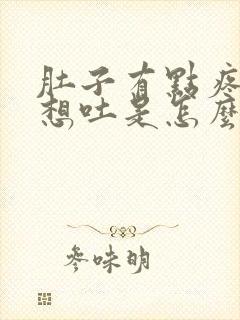 肚子有點疼
想吐是怎麼
參味明